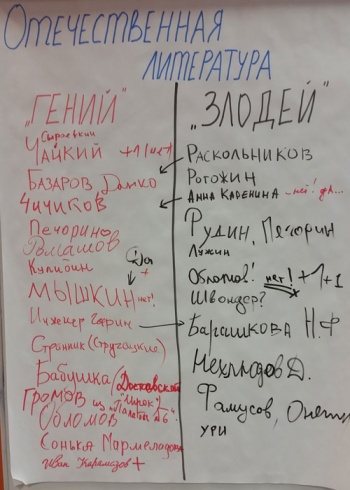 ОТЕЧЕСТВЕННАЯ
ЛИТЕРАТУРА
"ГЕНИЙ"
Сыроежкин
ЧАЦКИЙ +1 (нет)
БАЗАРОВ, Данко
ЧИЧИКОВ
Печорин
Ромашов
Кулигин
Да
+
МЫШКИН нет!
Инженер Гарин
Странник (Стругацкие)
Бабушка (Достоевской
ГРОМОВ из "Палаты №6"
"Игрок")
Обломов
Сонька Мармеладова
Иван Карамазов +
"ЗЛОДЕЙ"
РАСКОЛЬНИКОВ
Рогожин
АННА КАРЕНИНА - нет! да...
Рудин, Печорин
Лужин
Обломов! нет! +1+1
Швондер?
Барашкова Н.Ф
Нехлюдов Д.
Фамусов, Онегин
УРИ